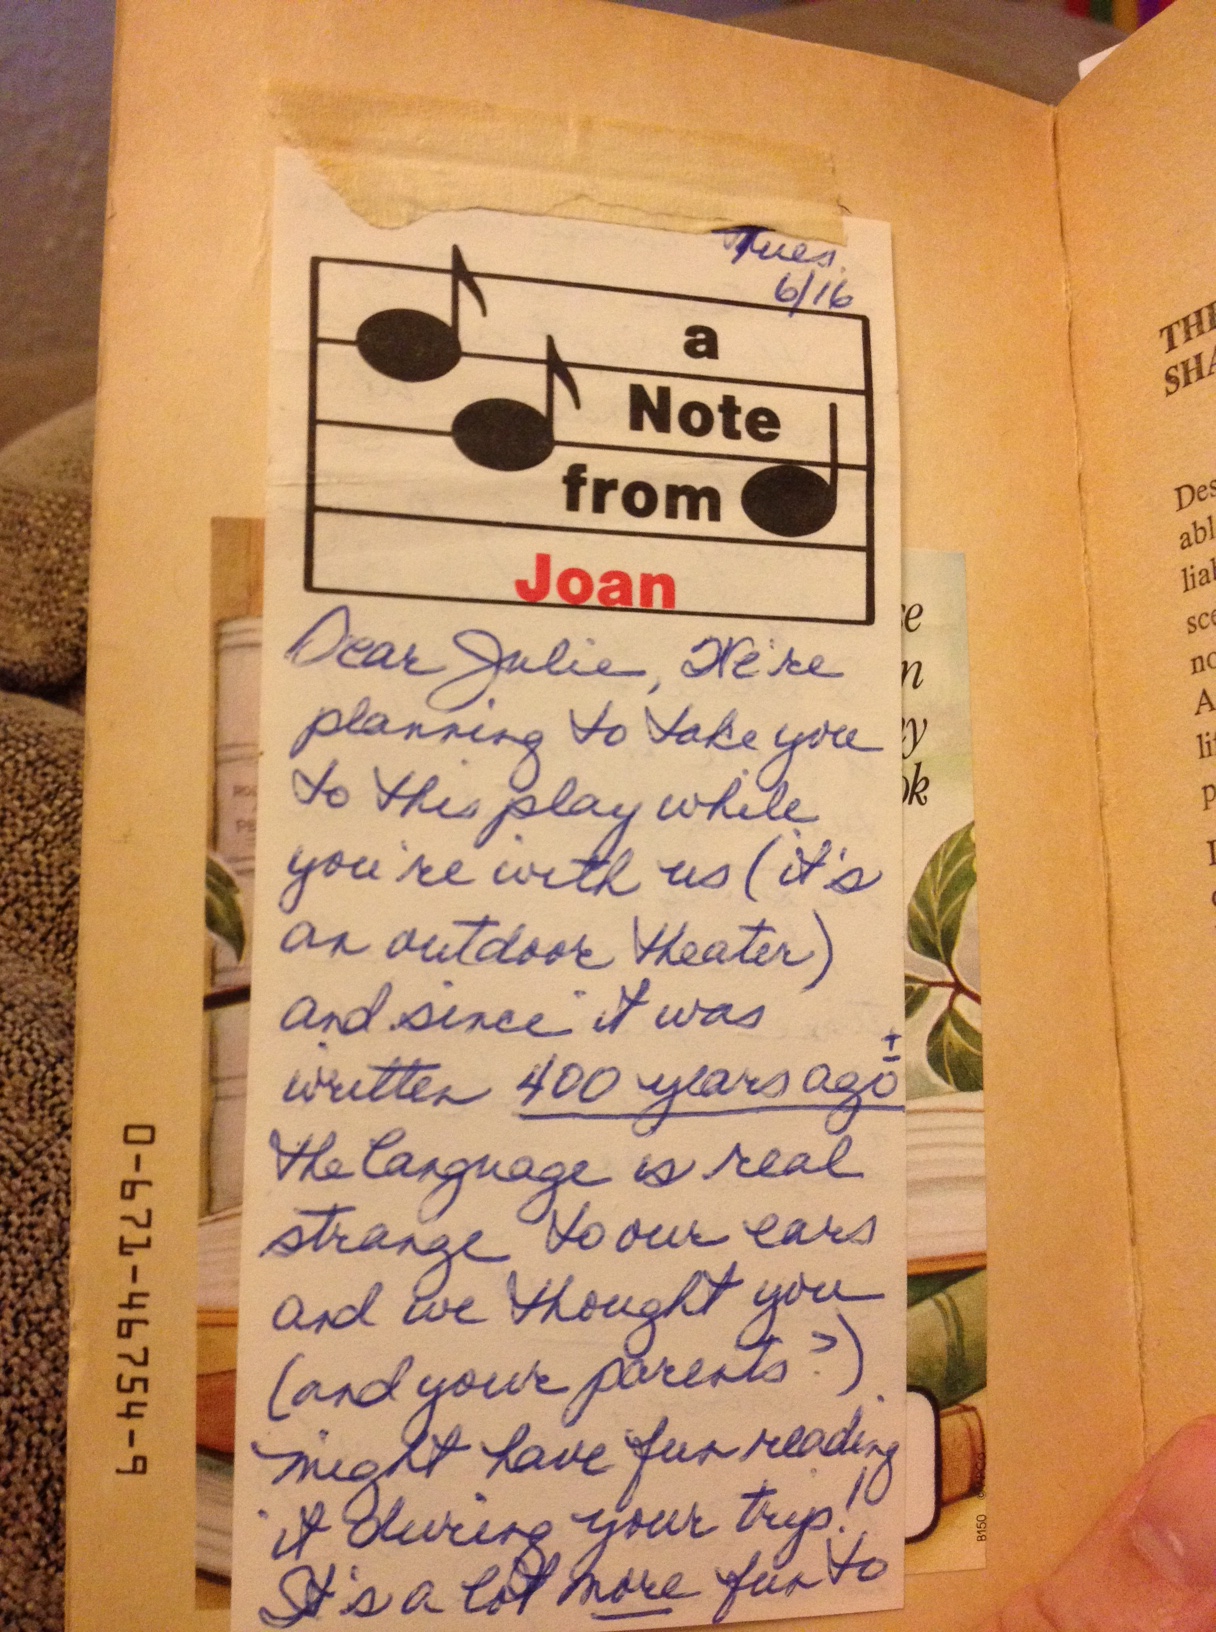 Tues.
6/16
a
Note
from
Joan
Dear Julie, We're
planning to take you
to this play while
you're with us (it's
an outdoor theater)
and since it was
written 400 years ago ±
the language is real
strange to our ears
and we thought you
(and your parents?)
might have fun reading
it during your trip!
It's a lot more fun to
0-671-46754-9
B150
THE
SHA
Des
abl
lia
sce
no
A
li
p